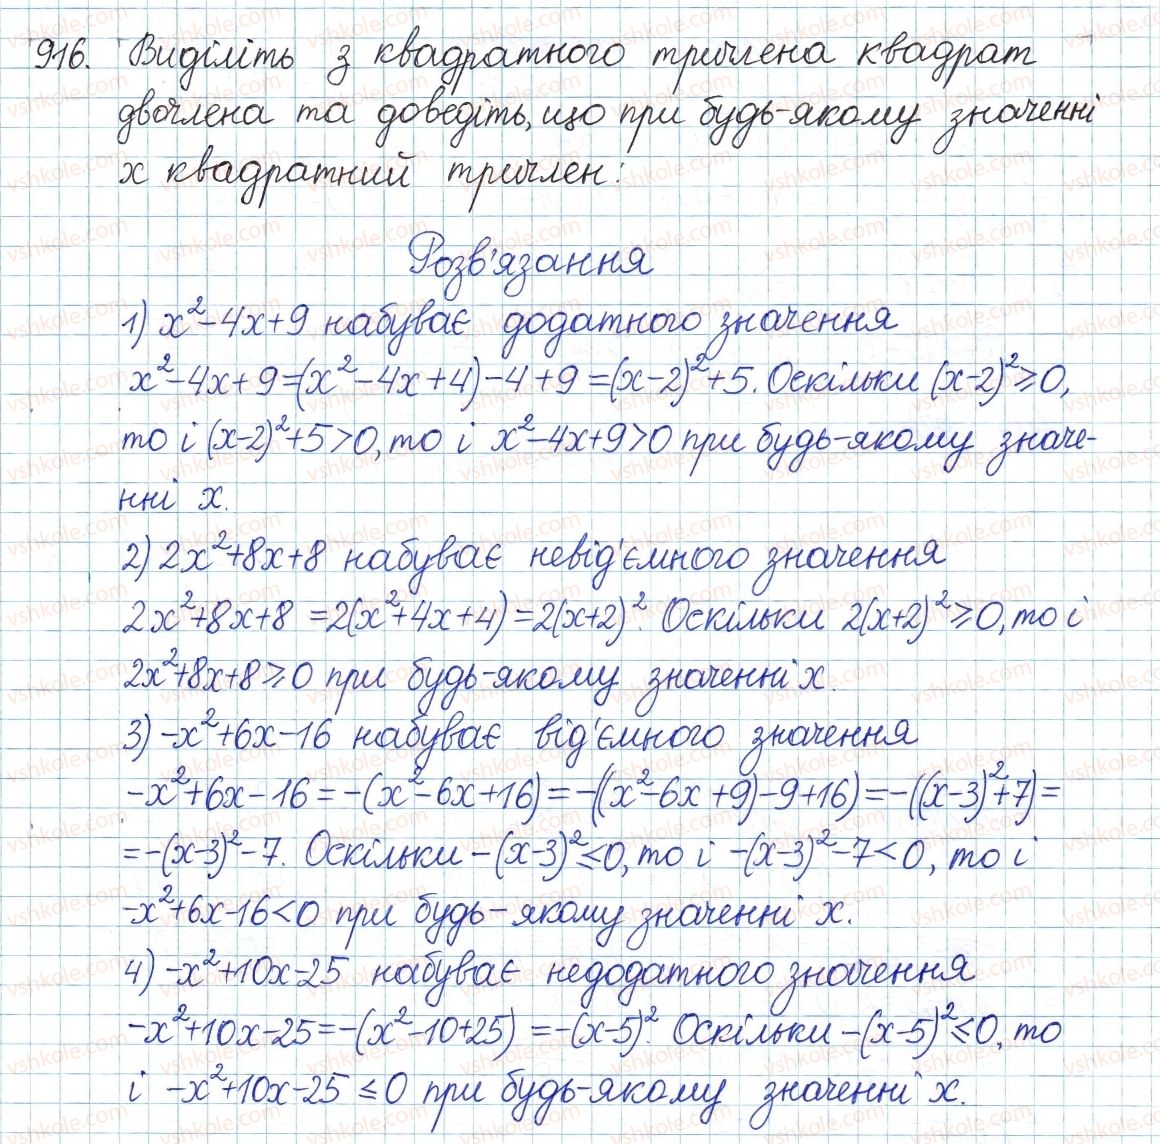 916. Виділіть з квадратного тричлена квадрат
двочлена та доведіть, що при будь-якому значенні
x квадратний тричлен:
Розв'язання
1) x²-4x+9 набуває додатного значення
x²-4x+9=(x²-4x+4)-4+9=(x-2)²+5. Оскільки (x-2)²≥0,
то і (x-2)²+5>0, то і x²-4x+9>0 при будь-якому значе-
нні x.
2) 2x²+8x+8 набуває невід'ємного значення
2x²+8x+8=2(x²+4x+4)=2(x+2)². Оскільки 2(x+2)²≥0, то і
2x²+8x+8≥0 при будь-якому значенні x.
3) -x²+6x-16 набуває від'ємного значення
-x²+6x-16=-(x²-6x+16)=-((x²-6x+9)-9+16)=-((x-3)²+7)=
=-(x-3)²-7. Оскільки -(x-3)²≤0, то і -(x-3)²-7<0, то і
-x²+6x-16<0 при будь-якому значенні x.
4) -x²+10x-25 набуває недодатного значення
-x²+10x-25=-(x²-10+25)=-(x-5)². Оскільки -(x-5)²≤0, то
і -x²+10x-25≤0 при будь-якому значенні x.